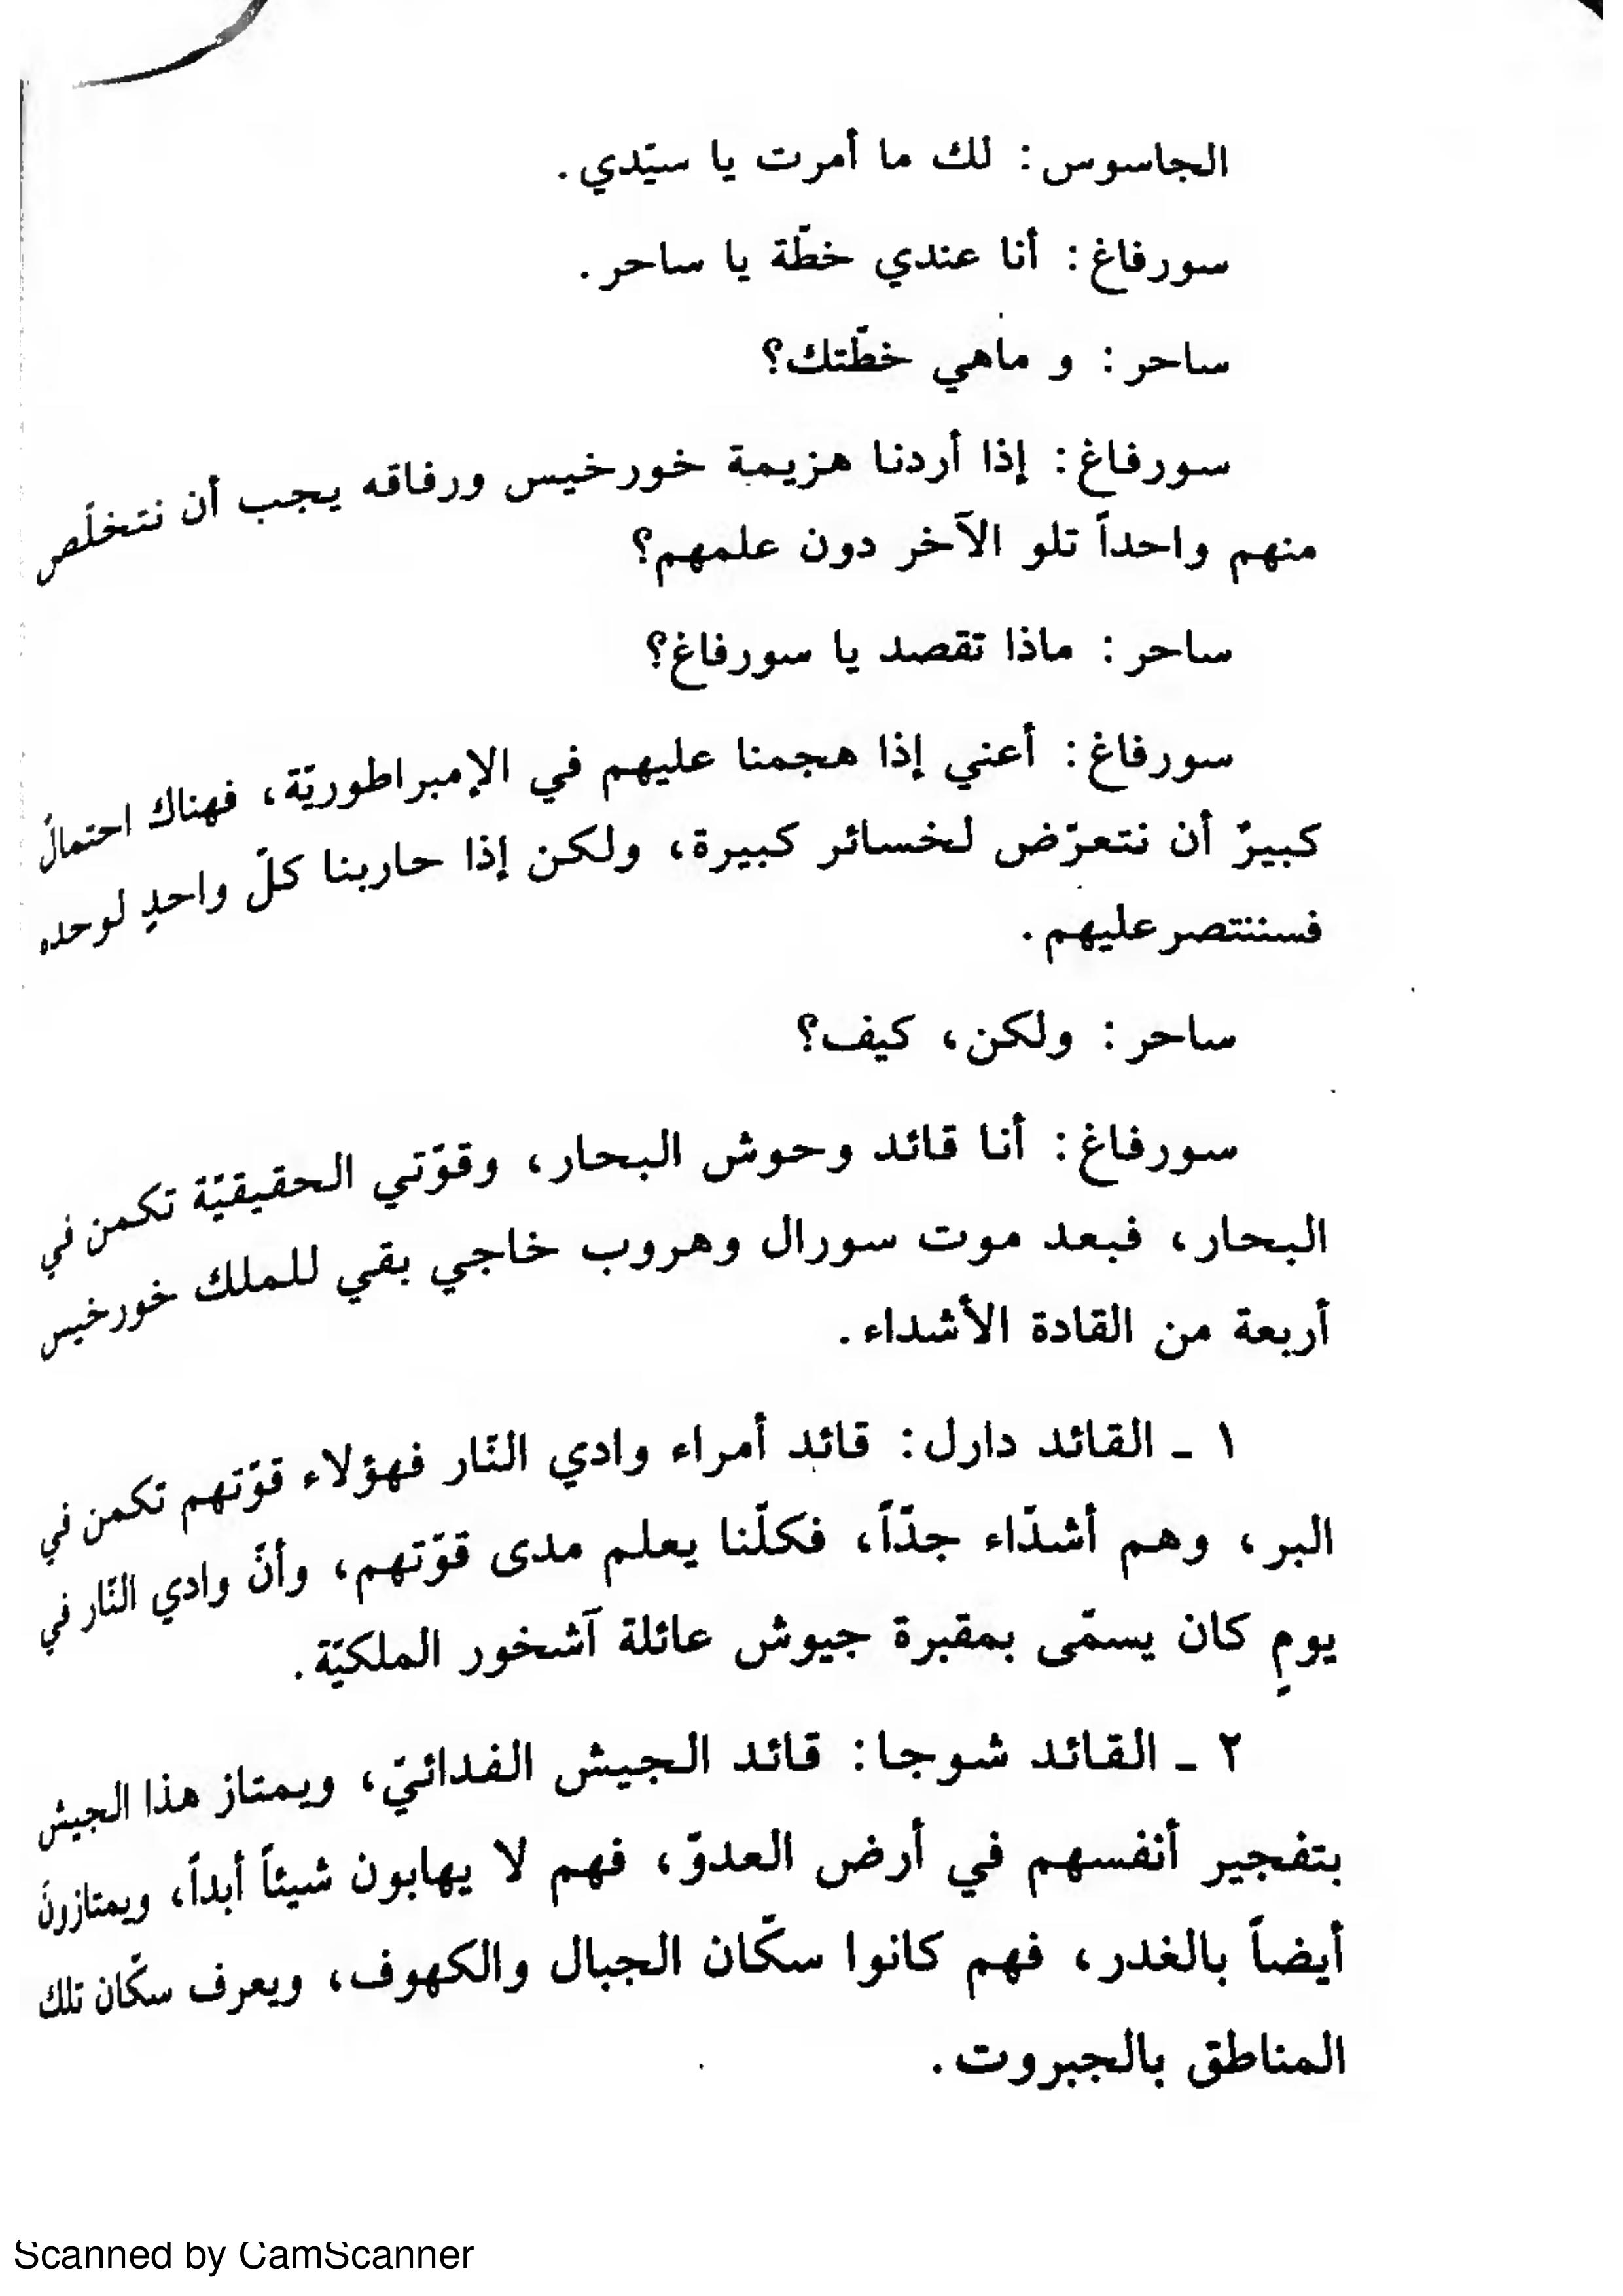 الجاسوس: لك ما أمرت يا سيّدي.
سورفاغ: أنا عندي خطّة يا ساحر.
ساحر: و ماهي خطّتك؟
سورفاغ: إذا أردنا هزيمة خورخيس ورفاقه يجب أن نتخلّص
منهم واحداً تلو الآخر دون علمهم؟
ساحر: ماذا تقصد يا سورفاغ؟
سورفاغ: أعني إذا هجمنا عليهم في الإمبراطوريّة، فهناك احتمالٌ
كبيرٌ أن نتعرّض لخسائر كبيرة، ولكن إذا حاربنا كلّ واحدٍ لوحده
فسننتصر عليهم.
ساحر: ولكن، كيف؟
سورفاغ: أنا قائد وحوش البحار، وقوّتي الحقيقيّة تكمن في
البحار، فبعد موت سورال وهروب خاجي بقي للملك خورخيس
أربعة من القادة الأشداء.
١ ـ القائد دارل: قائد أمراء وادي النّار فهؤلاء قوّتهم تكمن في
البر، وهم أشدّاء جدّاً، فكلّنا يعلم مدى قوّتهم، وأنّ وادي النّار في
يومٍ كان يسمّى بمقبرة جيوش عائلة آشخور الملكيّة.
٢ ـ القائد شوجا: قائد الجيش الفدائيّ، ويمتاز هذا الجيش
بتفجير أنفسهم في أرض العدوّ، فهم لا يهابون شيئاً أبداً، ويمتازونَ
أيضاً بالغدر، فهم كانوا سكّان الجبال والكهوف، ويعرف سكّان تلك
المناطق بالجبروت.
Scanned by CamScanner